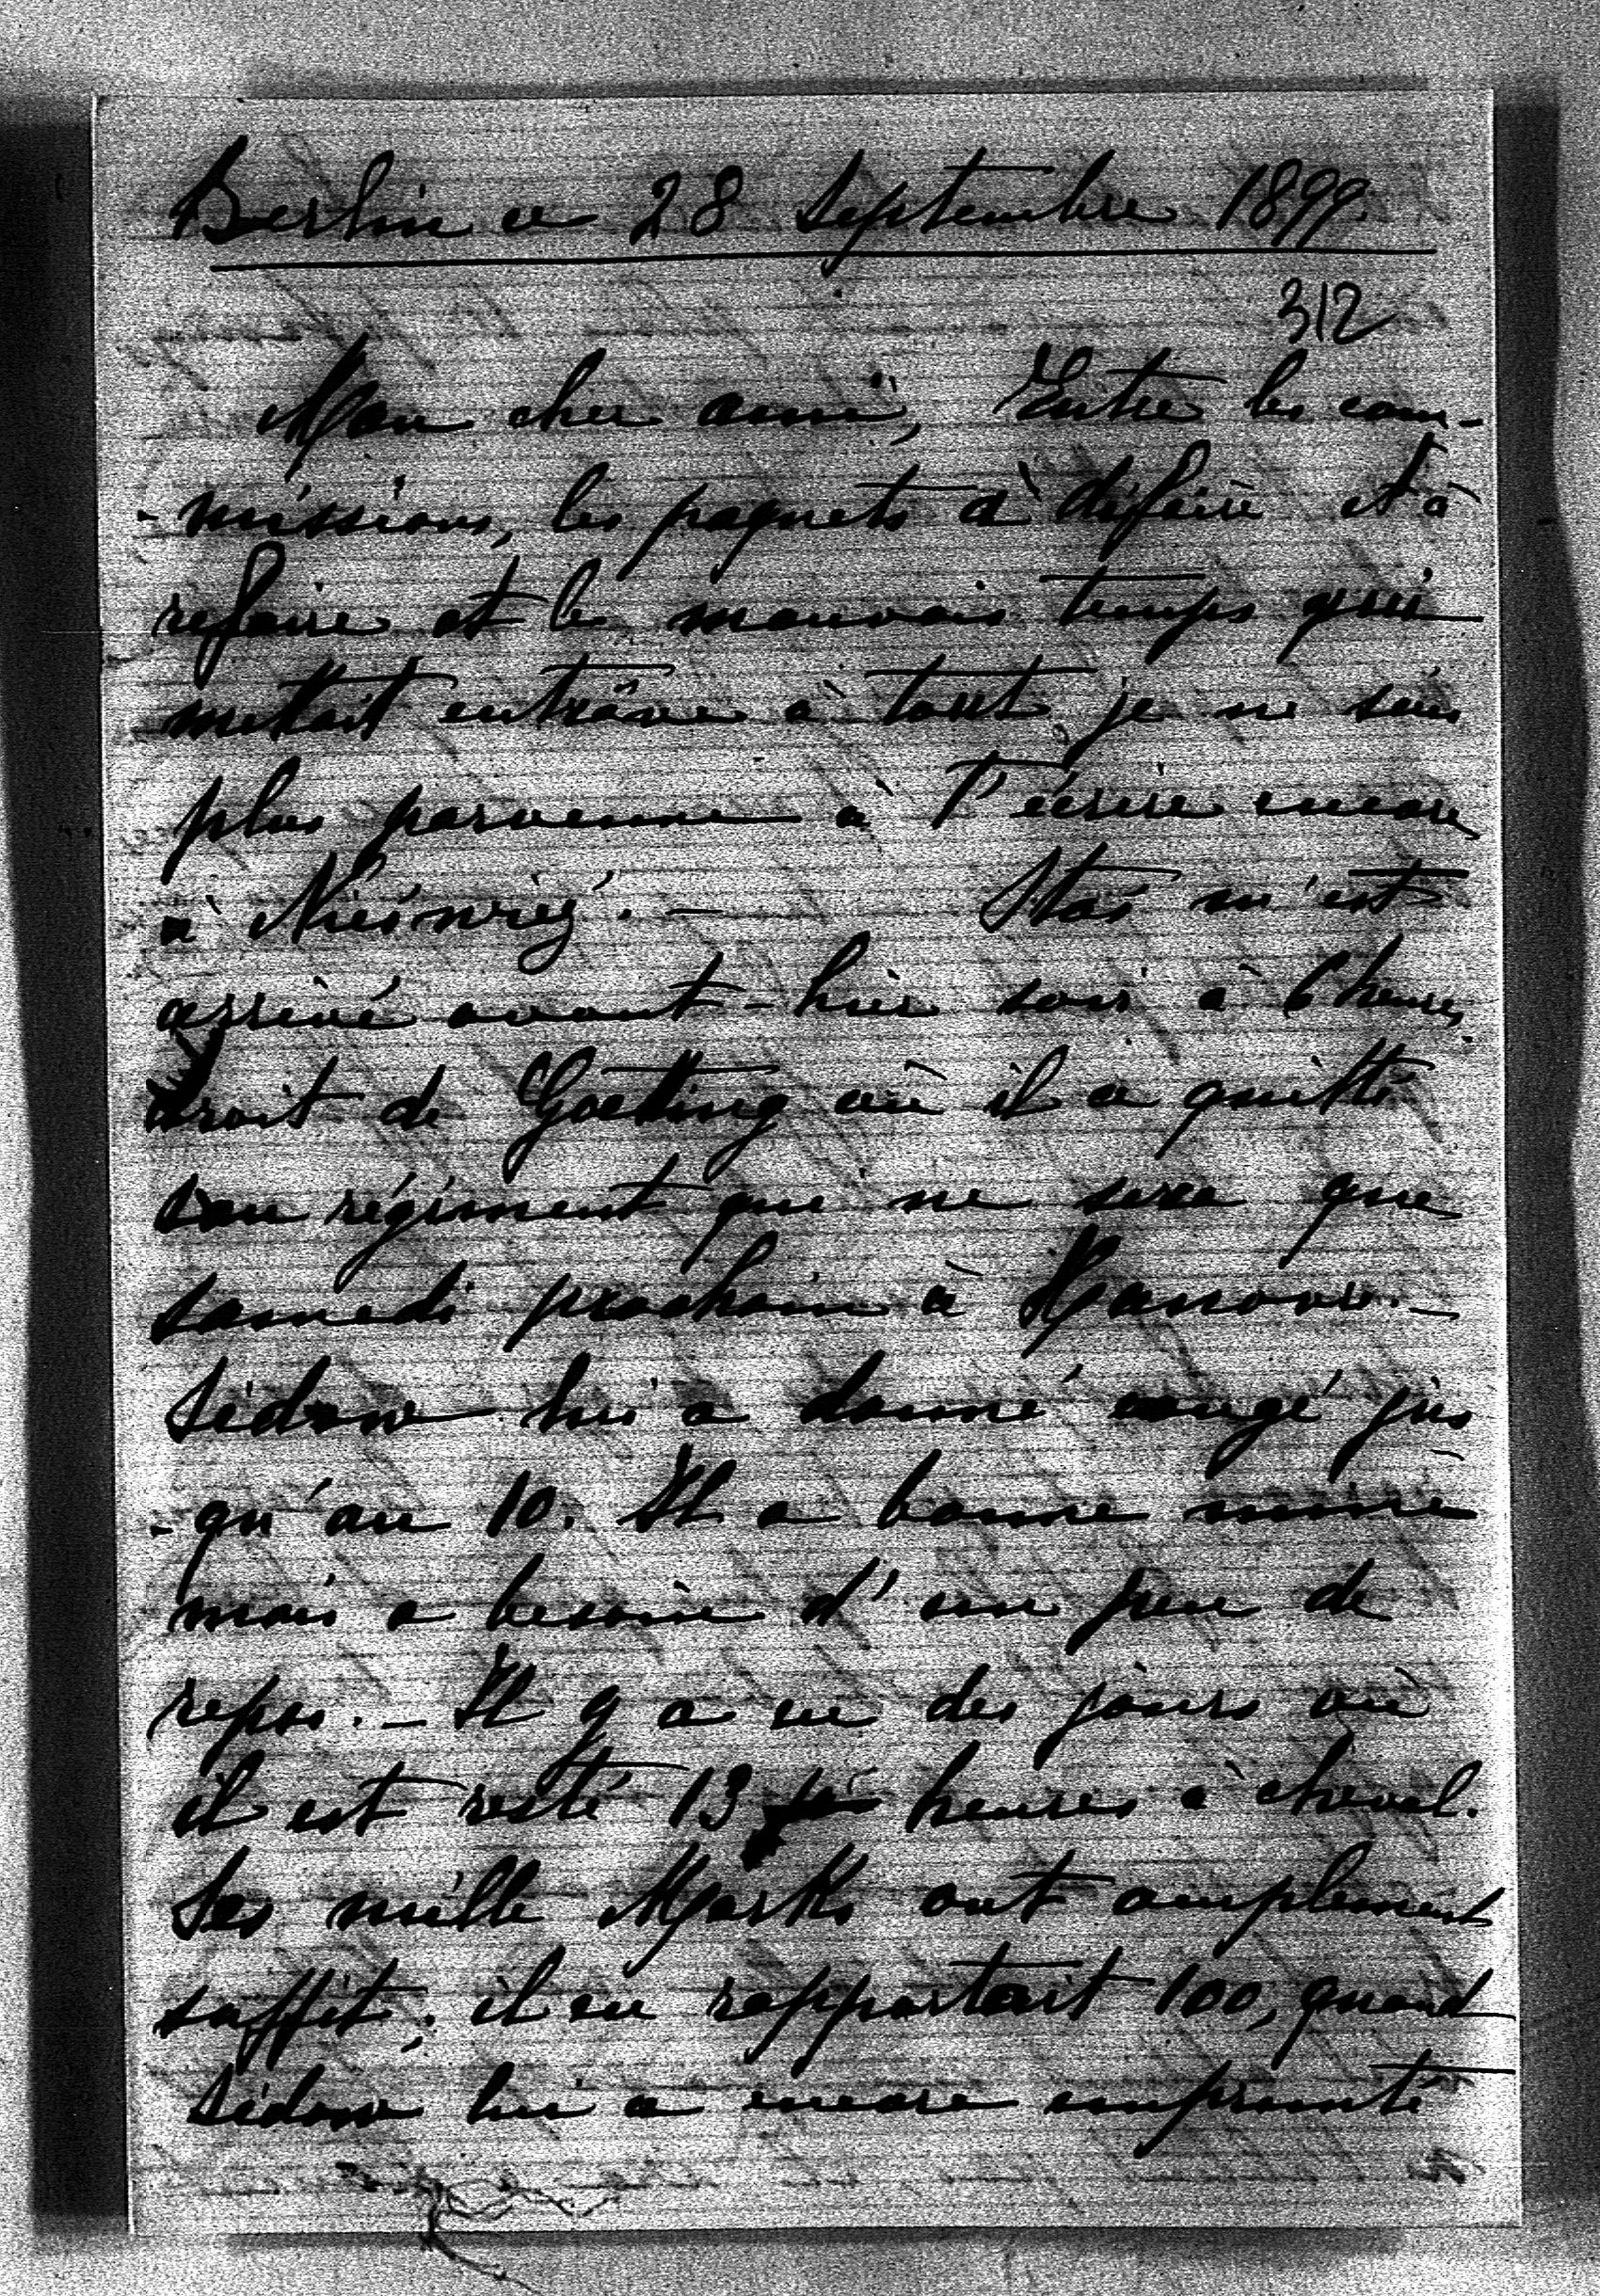 Berlin ce 28 Septembre 1899.
312
Mon cher ami, Entre les com-
-missions, les paquets à défaire et à
refaire et le mauvais temps qui
mettait entrâve à tout, je ne suis
plus parvenue à T'écrire encore
à Nieśwież. — Staś m'est
arrivé avant-hier soir à 6 heures,
droit de Goetting où il a quitté
son régiment qui ne sera que
samedi prochain à Hanovre. —
Sidow lui a donné congé jus
-qu'au 10. Il a bonne mine
mais a besoin d'un peu de
repos. — Il y a eu des jours où
il est resté 13 heures à cheval.
Ses mille Marks ont amplement
suffit; il en rapportait 100, quand
Sidow lui a encore emprunté